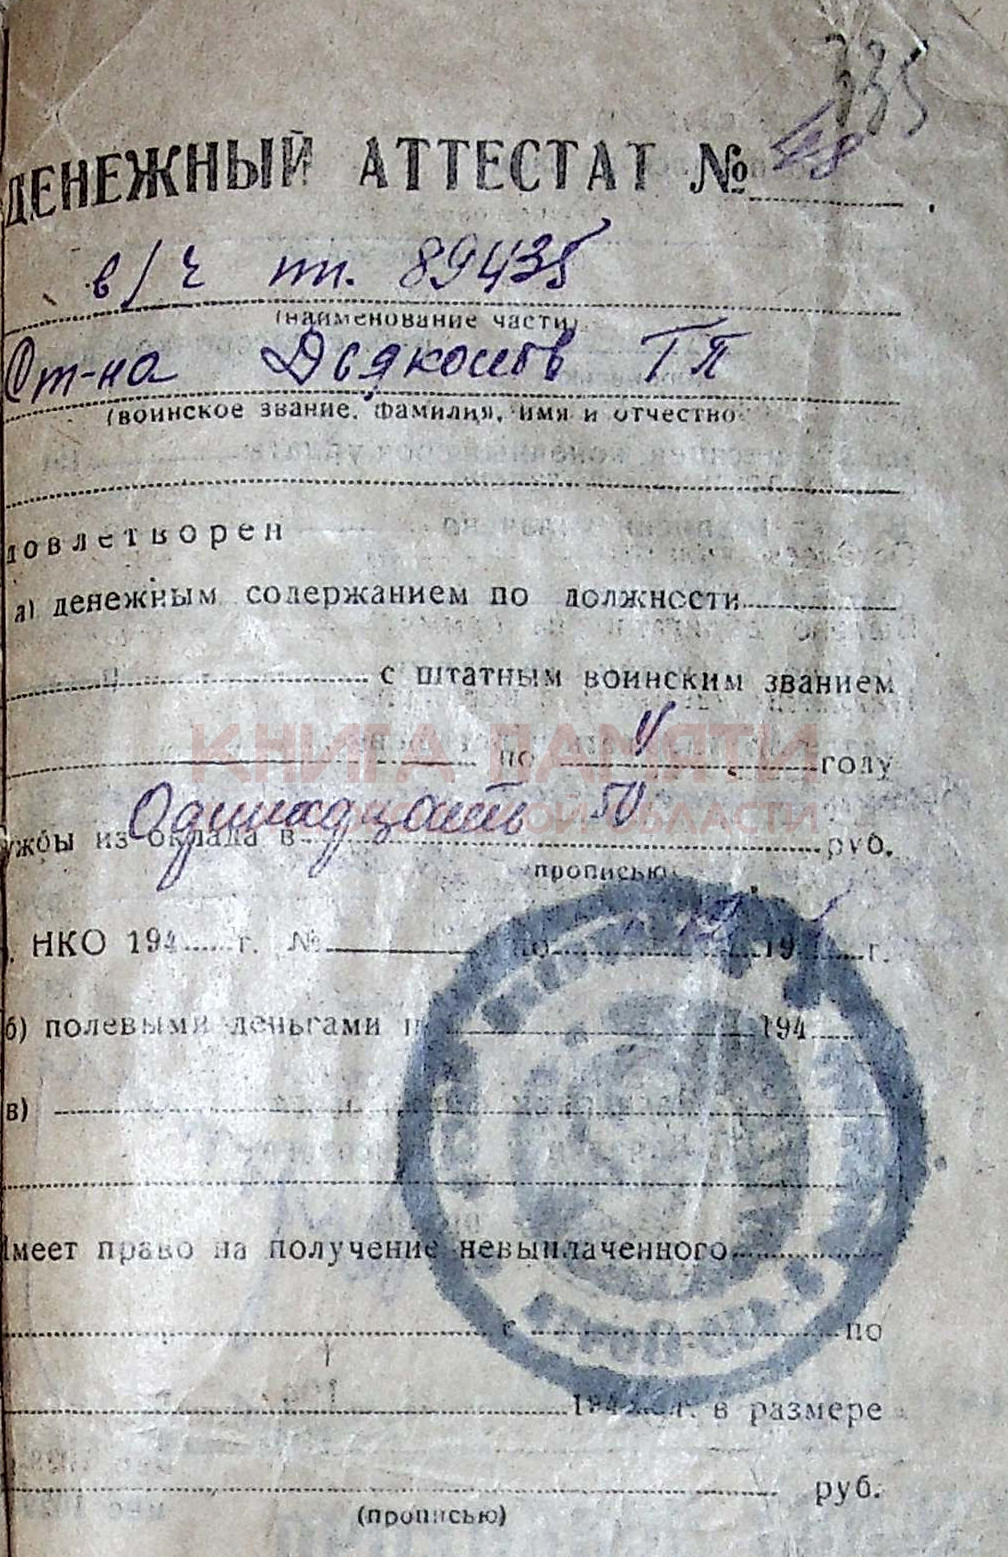 335
ДЕНЕЖНЫЙ АТТЕСТАТ № 48
в/ч пп. 89435
(наименование части)
Ст-на Дьяконов Г П
(воинское звание, фамилия, имя и отчество
довлетворен
а) денежным содержанием по должности
с штатным воинским званием
по V году
КНИГА ПАМЯТИ
ОБЛАСТИ
ужбы из оклада в Одинадцать 50 руб.
прописью
. НКО 194 г. № по 194 г.
б) полевыми деньгами п 194
в)
имеет право на получение невыплаченного
с по
194 г. в размере
руб.
(прописью)